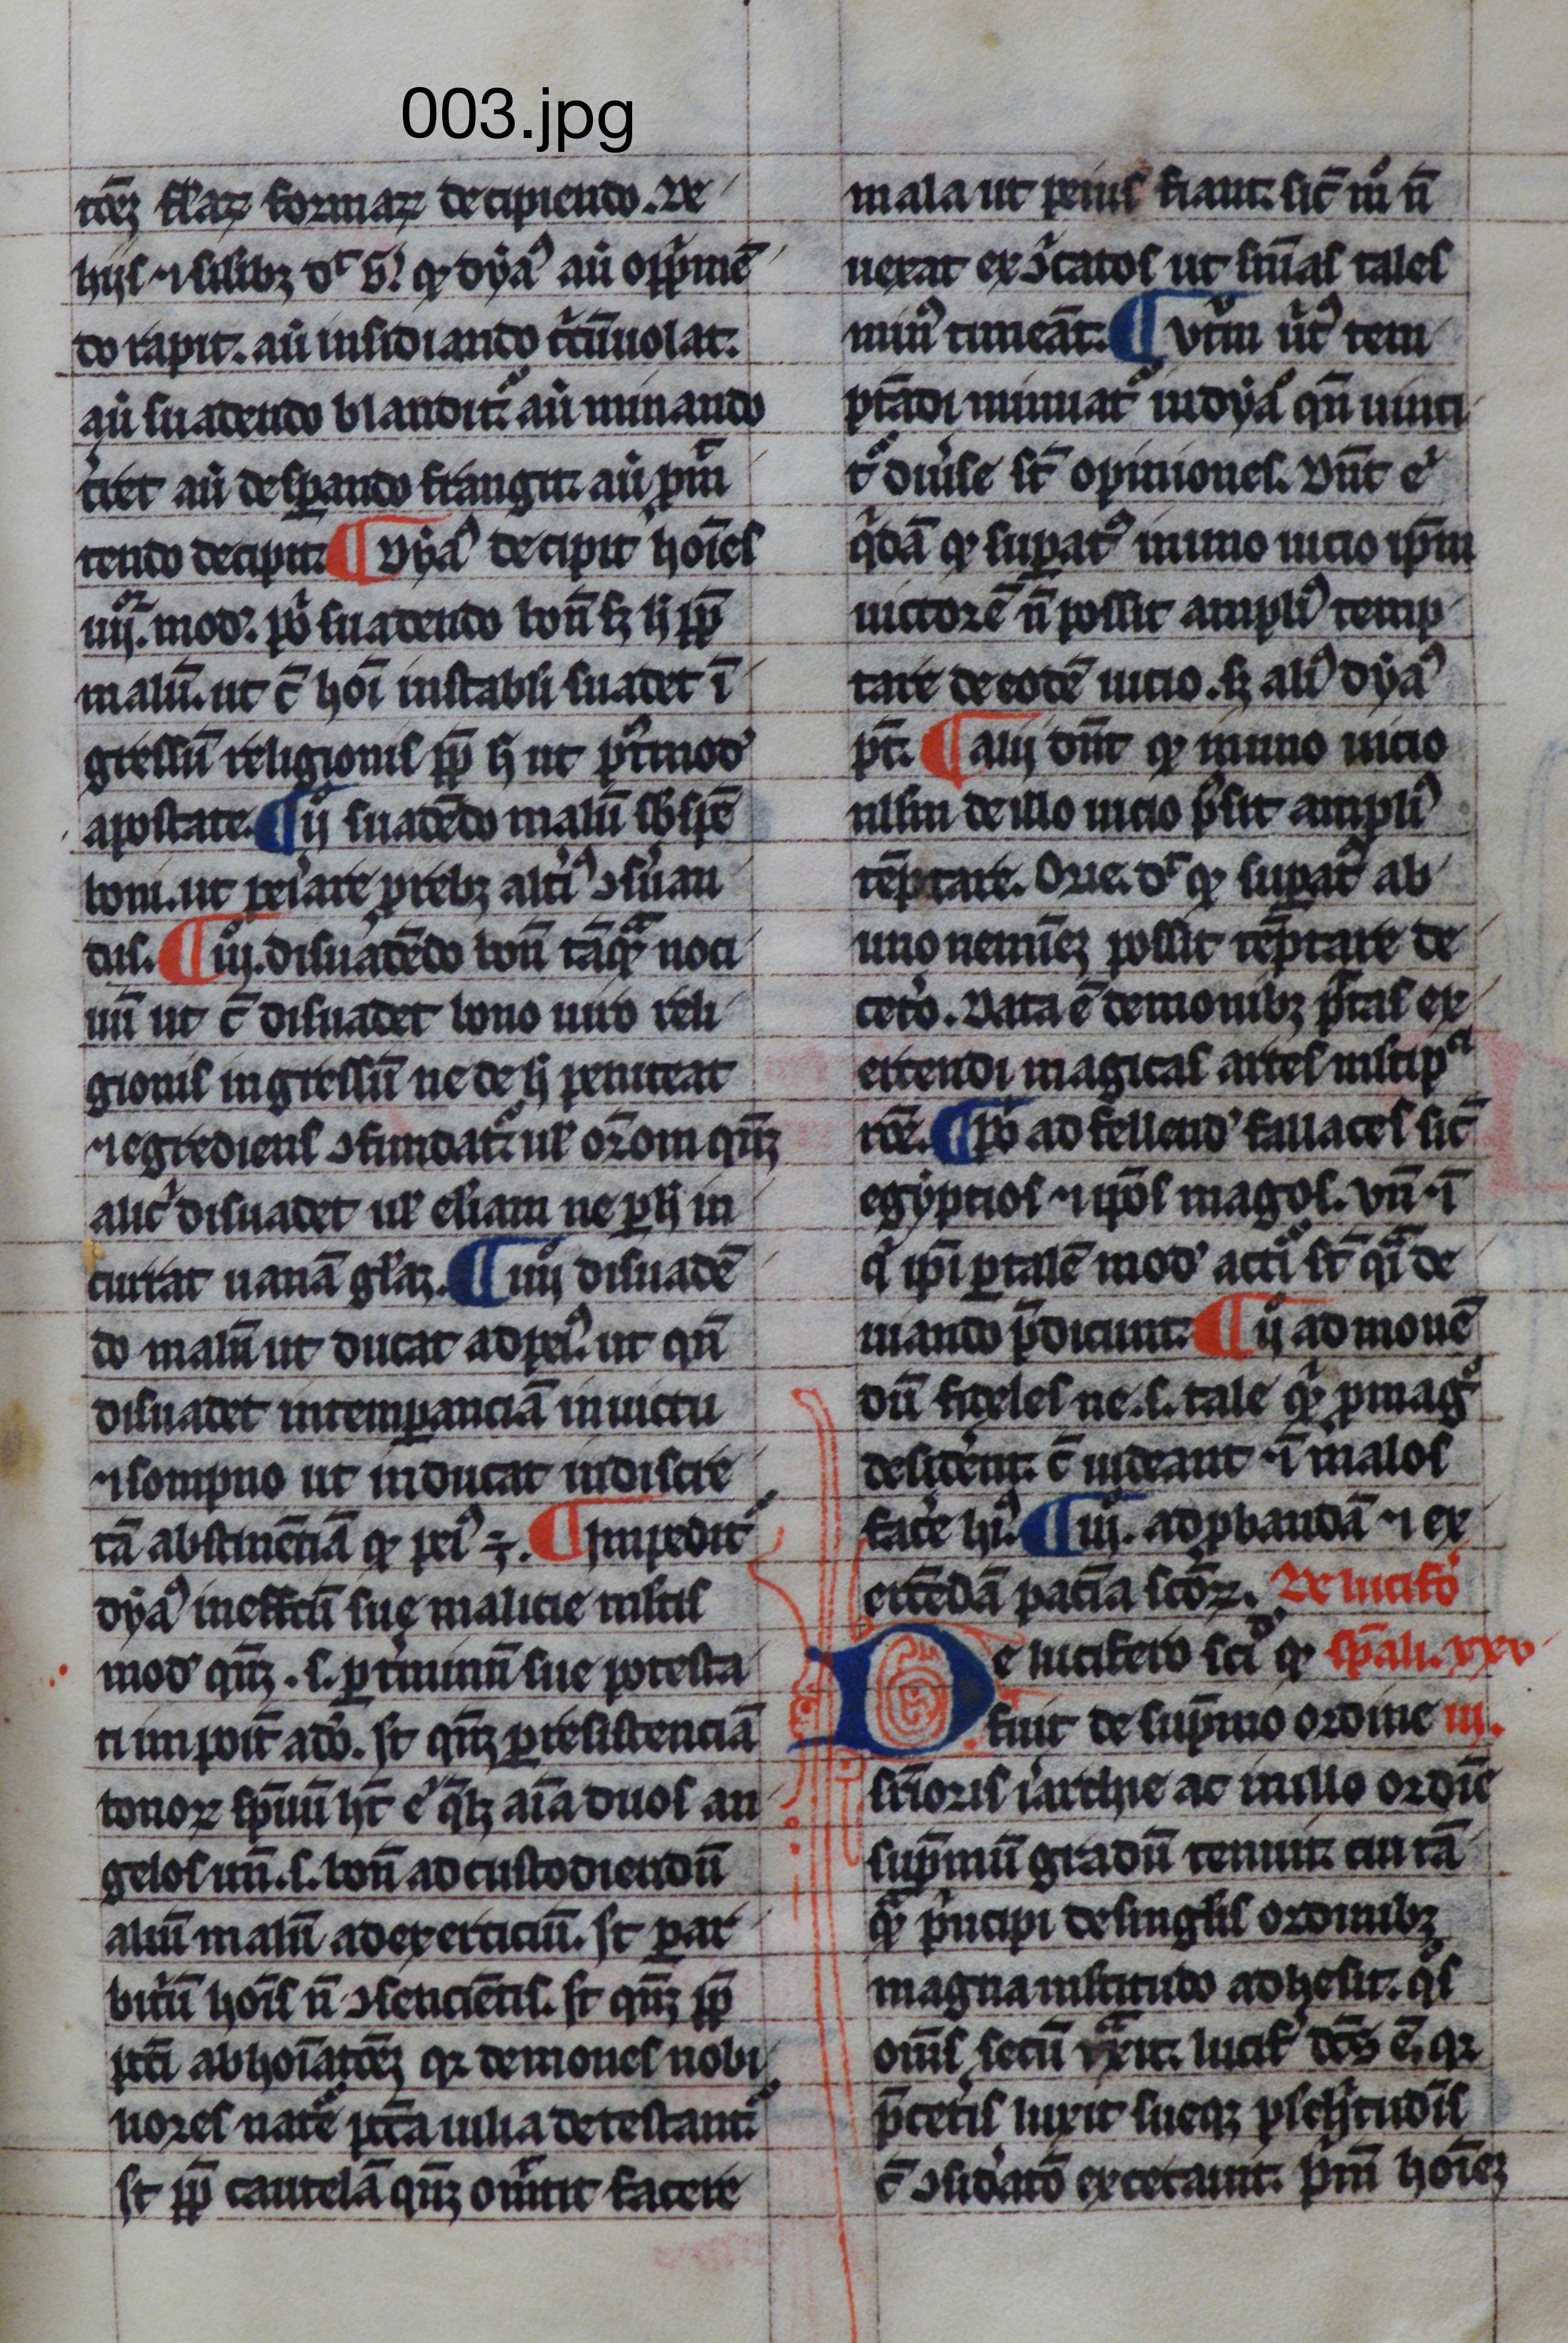 003.jpg
tōeꝫ fl̄aꝝ formaꝝ decipiendo. De
hijs ⁊ silibꝫ dꝰ b̾. ꝙ dyaꝰ aū opp̄mē
do rapit. aū insidiando c̄cūuolat.
aū suadendo blandit᷑. aū minando
t̾ret aū desꝑando frangit. aū ꝓmit
tendo decipit. ¶ Dyaꝰ decipit hoīes
iiij. mod̾. pº suadendo bonū sꝫ h̄ ꝓp̄
malū. ut c̄ hoī instabili suadet ī
gressū religionis ꝓp̄ h̄ ut p̾ꝰmod̾
apostate. ¶ ijº suadēdo malū sb̄ spē
boni. ut pei̾are p̄cibꝫ alt̾iꝰ ↄsu̾an
dus. ¶ iijº. disuadēdo bonū tāqᷓ noci
uū ut c̄ disuadet bono uiro reli
gionis ingressū ne de h̄ peniteat
⁊ egrediens ↄfundat᷑. ul̾ or̄oni qm̄ꝫ
alic̾ disuadet ul̾ eliam ne ꝑ h̄ in
currat uanā gl̄aꝫ. ¶ iiijº disuadē
do malū ut ducat ad peiꝰ. ut qn̄
disuadet intemꝑanciā in uictu
⁊ sompno ut inducat indiscre
tā abstinēciā ꝙ peiꝰ ÷. ¶ Impedit᷑
dyaꝰ in effc̄tū sue malicie mltis
mod̾ qm̄ꝫ. s. ꝑ t̾minū sue potesta
ti inpoit̄ a dō. st̄ qm̄ꝫ ꝑ resistenciā
bonoꝝ sp̄ūū ht̄ e̾ q̄lꝫ aīa duos an
gelos unū. s. bonū ad custodiendū
aliū malū ad exerciciū. st̄ ꝑ ar
bit̾ū hoīs n̄ ↄsencientis. st̄ qm̄ꝫ ꝓp̄
pcc̄i abhoīatōeꝫ qꝛ demones nobi
liores nat̾e pcc̄a uilia detestant᷑
st̄ ꝓp̄ cautelā qm̄ꝫ omittit facere
mala ut peius fiant. sic̄ mº n̄
uexat exↄ̄icatos ut sn̄ias tales
minꝰ timeāt. ¶ Vtrū u̾tꝰ tem
ptādi minuat᷑ in dyaº qn̄ uinci
t᷑ diu̾se st̄ opiniones. Dnt̄ e̾
q̾dā ꝙ suꝑatꝰ in uno uicio ip̄m
uictorē n̄ possit ampliꝰ temp
tare de eodē uicio. sꝫ aliꝰ dyaꝰ
pt̄. ¶ alij dn̄t ꝙ in uno uicio
ullm de illo uicio p̾sit ampliꝰ
tēptare. Orig. dꝰ ꝙ suꝑatꝰ ab
uno nemīeꝫ possit tēptare de
cet̾o. Data ē demonibꝫ p̾tas ex
ercendi magicas artes mltip̾ci
tōe. ¶ pº ad fallend̾ fallaces sic̄
egyptios ⁊ ip̄os magos. vn̄ ⁊ ī
q̾ ip̄i ꝑ talē mod̾ acti st̄ qᷓ de
mando p̄dicunt. ¶ ijº ad monē
dū fideles ne. s. tale qᷓ ꝑ magº
desiderent. c̄ uideant ⁊ ī malos
face̾ hiꝰ. ¶ iijº. ad ꝓbandā ⁊ ex
ercēdā paciā sc̄oꝝ. De lucifo̾
De lucifero sciº ꝙ sp̄ali. xxv
fuit de sup̄mo ordine iij.
sup̾ioris iarchie ac in illo ordīe
sup̄mū gradū tenuit. cui tā
qᷓ p̾ncipi de singlis ordinibꝫ
magna mltitudo adhesit. qºs
om̄s secū traxit. lucif̾ dc̄s ē. qꝛ
p̄ cet̾is luxit sueqꝫ plc̾hitudīs
c̄ ↄsid̾atō excecauit. p̄m̄ hoīeꝫ